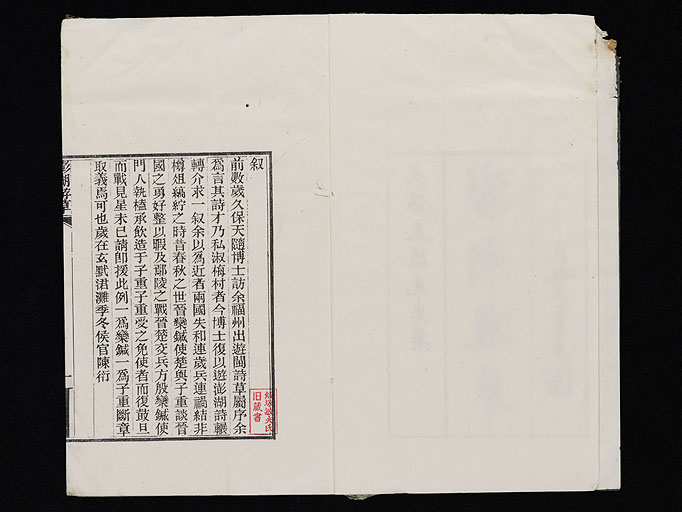 叙
前數歲久保天隨博士訪余福州出遊閩詩草屬序余
爲言其詩才乃私淑梅村者今博士復以遊澎湖詩輾
轉介求一叙余以爲近者兩國失和連歲兵連禍結非
樽俎縞紵之時昔春秋之世晉欒鍼使楚與子重談晉
國之勇好整以暇及鄢陵之戰晉楚交兵方殷欒鍼使
門人執榼承飲造于子重子重受之免使者而復鼓旦
而戰見星未已請卽援此例一爲欒鍼一爲子重斷章
取義焉可也歲在玄黓涒灘季冬侯官陳衍
澎湖遊草
一
旧蔵書